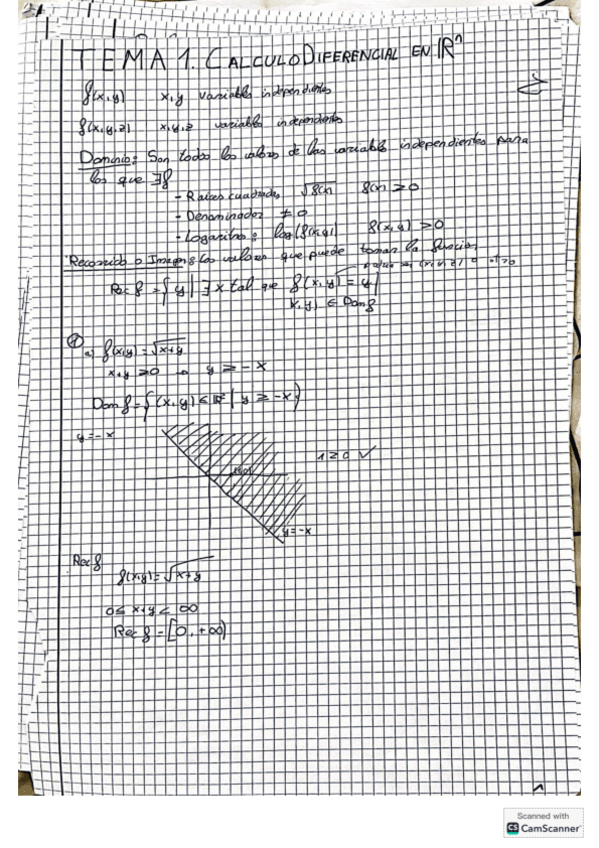 TEMA 1. CALCULO DIFERENCIAL EN ℝⁿ
f(x,y) x,y variables independientes
f(x,y,z) x,y,z variables independientes
Dominio: Son todos los valores de las variables independientes para
los que ∃f
- Raices cuadradas √f(x) f(x) ≥ 0
- Denominador ≠ 0
- Logaritmo: log(f(x,y)) f(x,y) > 0
Recorrido o Imagen: los valores que puede tomar la función
Rec f = { y | ∃ x tal que f(x,y) = y }
x,y ∈ Dom f
① a) f(x,y) = √x+y
x+y ≥ 0 → y ≥ -x
Dom f = { (x,y) ∈ ℝ² | y ≥ -x }
y = -x
1 ≥ 0 ✓
y = -x
Rec f
f(x,y) = √x+y
0 ≤ x+y < ∞
Rec f = [0, +∞)
Scanned with
CS CamScanner